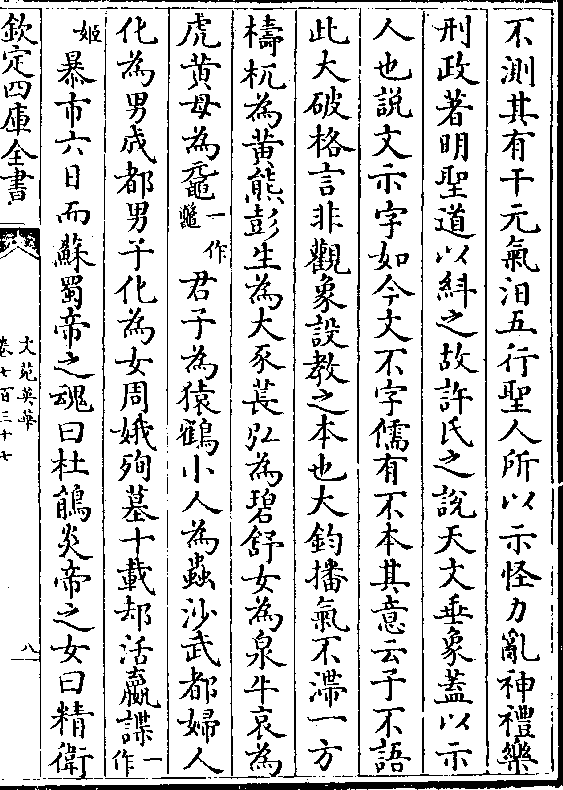 不測其有干元氣汨五行聖人所以示怪力亂神禮樂
刑政著明聖道以糾之故許氏之說天文垂象蓋以示
人也說文示字如今文不字儒有不本其意云子不語
此大破格言非觀象設教之本也大鈞播氣不滯一方
檮杌為黄熊彭生為大豕萇弘為碧舒女為泉牛哀為
虎黄母為黿一作鼈君子為猿鶴小人為蟲沙武都婦人
化為男成都男子化為女周娥殉墓十載却活嬴諜一作
姬暴市六日而蘇蜀帝之魂曰杜鵑炎帝之女曰精衛
欽定四庫全書
文苑英華
卷七百三十七
八